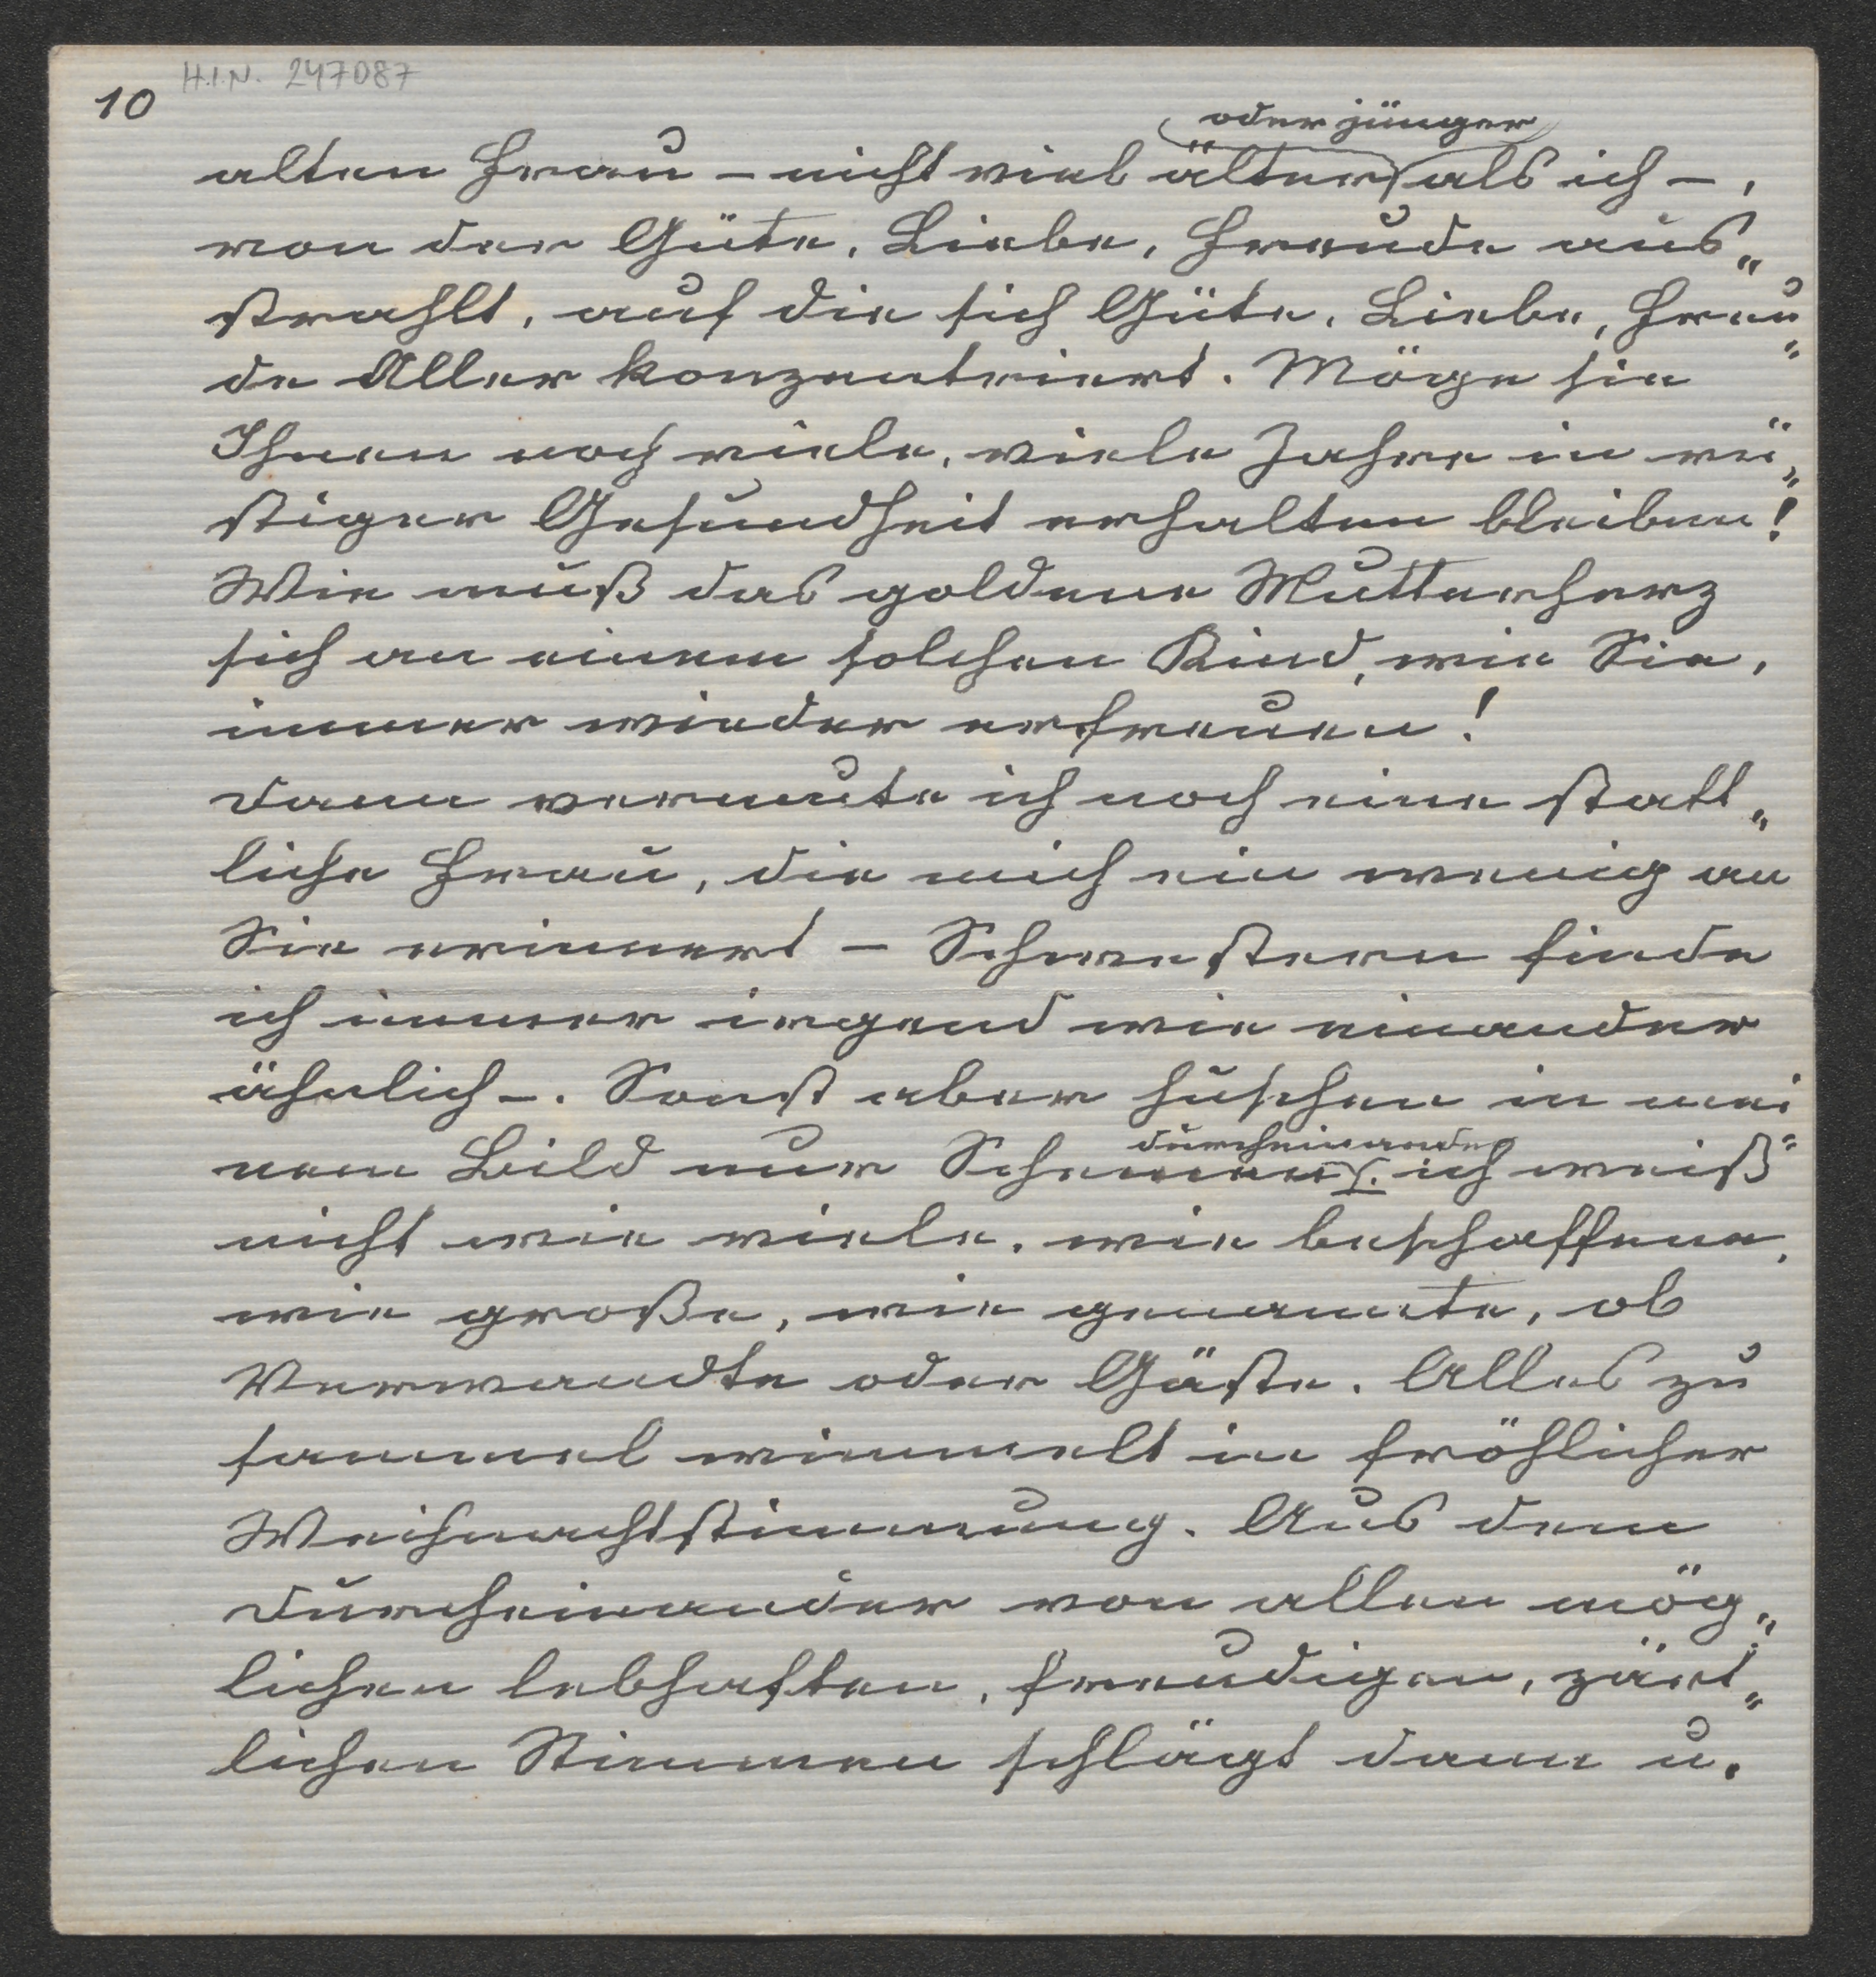 H.I.N. 247087
10
oder jünger
alten Frau – nicht viel älter als ich –,
von der Güte, Liebe, Freude aus„
strahlt, auf die sich Güte, Liebe, Freu„
de Aller konzentriert. Möge sie
Ihnen noch viele, viele Jahre in rü„
stiger Gesundheit erhalten bleiben!
Wie muß das goldene Mutterherz
sich an einem solchen Kind, wie Sie,
immer wieder erfreuen!
Dann vermute ich noch eine statt„
liche Frau, die mich ein wenig an
Sie erinnert – Schwestern finde
ich immer irgend wie einander
ähnlich –. Sonst aber huschen in mei„
durcheinander
nem Bild nur Schemen, ich weiß
nicht wie viele, wie beschaffene,
wie große, wie genannte, ob
Verwandte oder Gäste. Alles zu
sammel wimmelt in fröhlicher
Weihnachtstimmung. Aus dem
Durcheinander von allen mög„
lichen lebhaften, freudigen, zärt„
lichen Stimmen schlägt dann u.